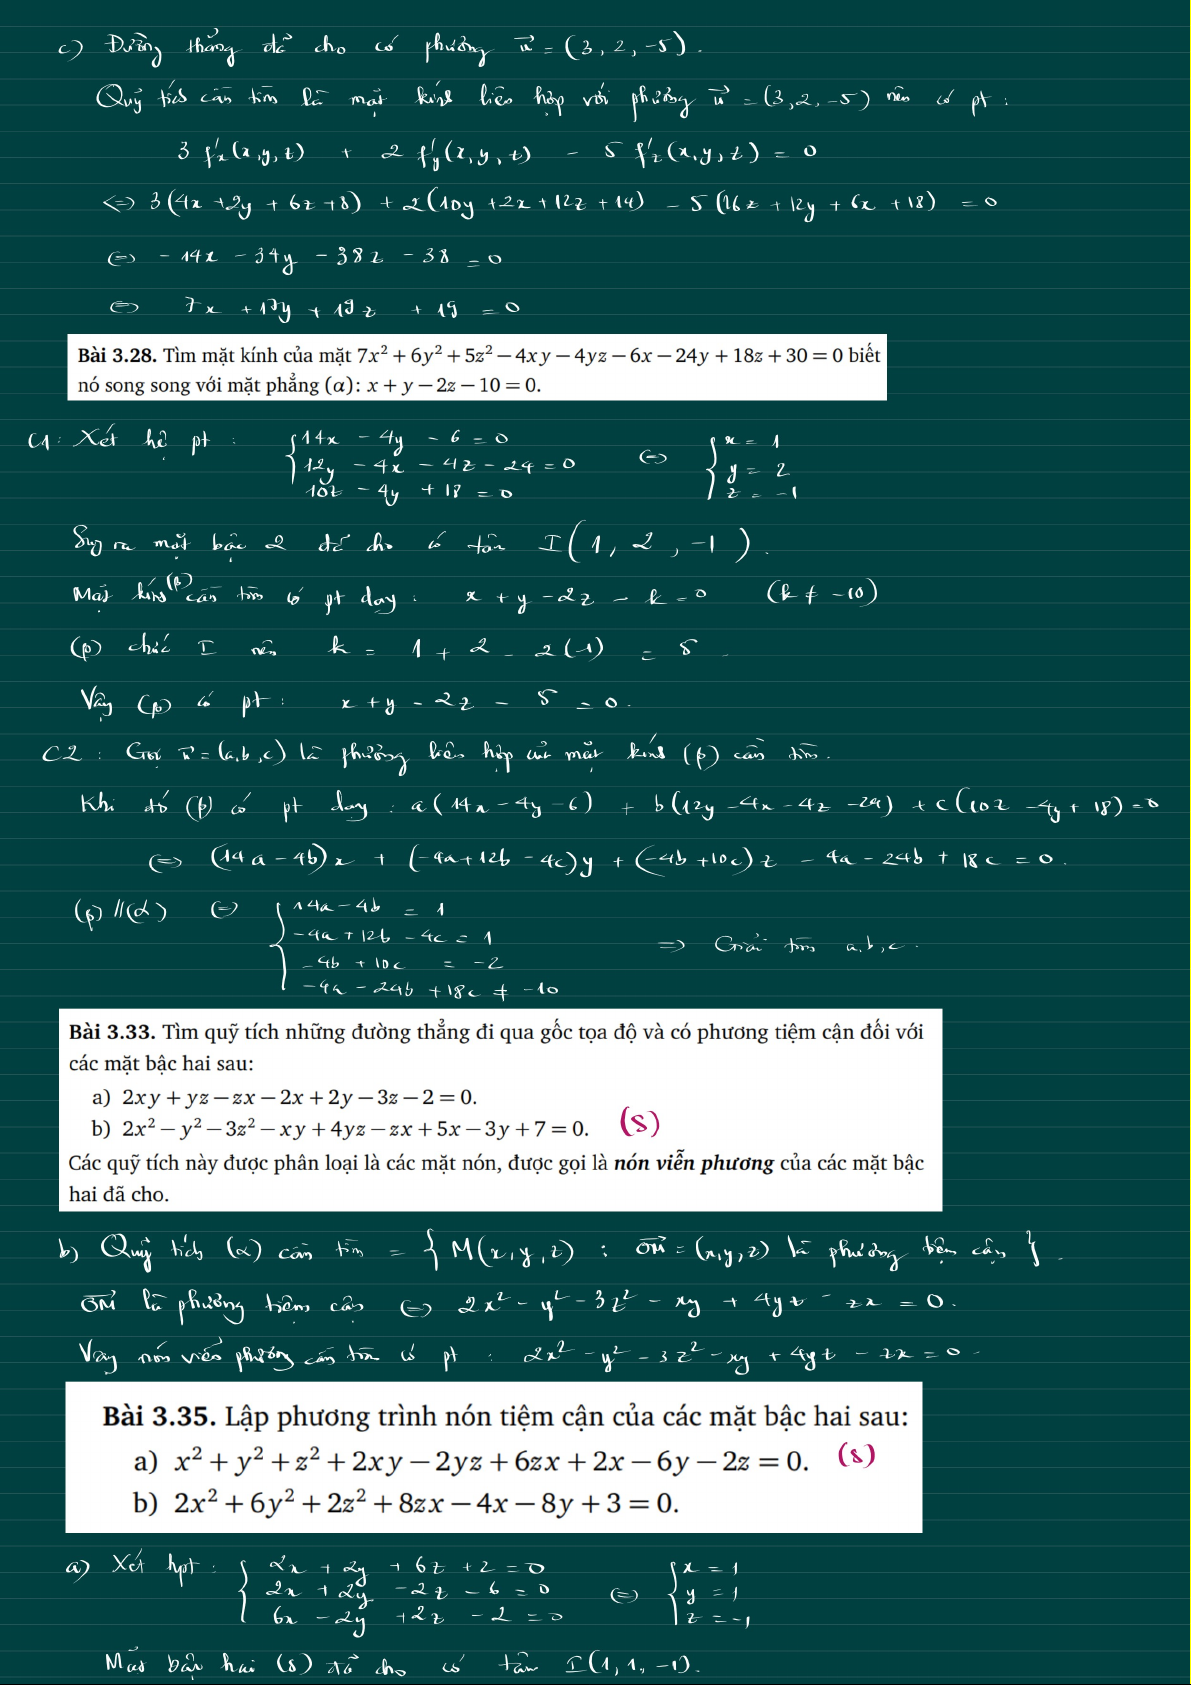 c) Đường thẳng đã cho có phương u⃗ = (3, 2, -5).
Quỹ tích cần tìm là mặt kính liên hợp với phương u⃗ = (3, 2, -5) nên có pt :
3 f'x(x,y,z) + 2 f'y(x,y,z) - 5 f'z(x,y,z) = 0
<=> 3(4x + 2y + 6z + 8) + 2(10y + 2x + 12z + 14) - 5(16z + 12y + 6x + 18) = 0
<=> - 14x - 34y - 38z - 38 = 0
<=> 7x + 17y + 19z + 19 = 0
Bài 3.28. Tìm mặt kính của mặt 7x² + 6y² + 5z² − 4xy − 4yz − 6x − 24y + 18z + 30 = 0 biết
nó song song với mặt phẳng (α): x + y − 2z − 10 = 0.
C1: Xét hệ pt : { 14x - 4y - 6 = 0 <=> { x = 1
12y - 4x - 4z - 24 = 0 y = 2
10z - 4y + 18 = 0 z = -1
Suy ra mặt bậc 2 đã cho có tâm I(1, 2, -1).
Mặt kính (β) cần tìm có pt dạng : x + y - 2z - k = 0 (k ≠ -10)
(β) chứa I nên k = 1 + 2 - 2(-1) = 5
Vậy (β) có pt : x + y - 2z - 5 = 0.
C2 : Gọi u⃗ = (a,b,c) là phương liên hợp của mặt kính (β) cần tìm.
Khi đó (β) có pt dạng : a(14x - 4y - 6) + b(12y - 4x - 4z - 24) + c(10z - 4y + 18) = 0
<=> (14a - 4b)x + (-4a + 12b - 4c)y + (-4b + 10c)z - 4a - 24b + 18c = 0.
(β) // (α) <=> { 14a - 4b = 1
-4a + 12b - 4c = 1 => Giải tìm a,b,c.
-4b + 10c = -2
-4a - 24b + 18c ≠ -10
Bài 3.33. Tìm quỹ tích những đường thẳng đi qua gốc tọa độ và có phương tiệm cận đối với
các mặt bậc hai sau:
a) 2xy + yz − zx − 2x + 2y − 3z − 2 = 0.
b) 2x² − y² − 3z² − xy + 4yz − zx + 5x − 3y + 7 = 0. (S)
Các quỹ tích này được phân loại là các mặt nón, được gọi là nón viễn phương của các mặt bậc
hai đã cho.
b) Quỹ tích (α) cần tìm = { M(x,y,z) : OM⃗ = (x,y,z) là phương tiệm cận }.
OM⃗ là phương tiệm cận <=> 2x² - y² - 3z² - xy + 4yz - zx = 0.
Vậy nón viễn phương cần tìm có pt : 2x² - y² - 3z² - xy + 4yz - zx = 0.
Bài 3.35. Lập phương trình nón tiệm cận của các mặt bậc hai sau:
a) x² + y² + z² + 2xy − 2yz + 6zx + 2x − 6y − 2z = 0. (S)
b) 2x² + 6y² + 2z² + 8zx − 4x − 8y + 3 = 0.
a) Xét hpt : { 2x + 2y + 6z + 2 = 0 <=> { x = 1
2x + 2y - 2z - 6 = 0 y = 1
6x - 2y + 2z - 2 = 0 z = -1
Mặt bậc hai (S) đã cho có tâm I(1, 1, -1).